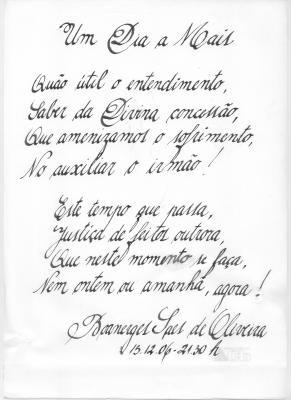 Um Dia a Mais
Quão útil o entendimento,
Saber da Divina concessão,
Que amenizamos o sofrimento,
No auxiliar o irmão!
Este tempo que passa,
Justiça de feitor outrora,
Que neste momento se faça,
Nem ontem ou amanhã, agora!
Boanerges Saes de Oliveira
13.12.06 - 21:30 h